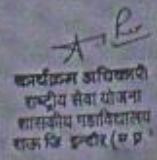 कार्यक्रम अधिकारी
राष्ट्रीय सेवा योजना
शासकीय महाविद्यालय
राऊ जि इन्दौर (म प्र)